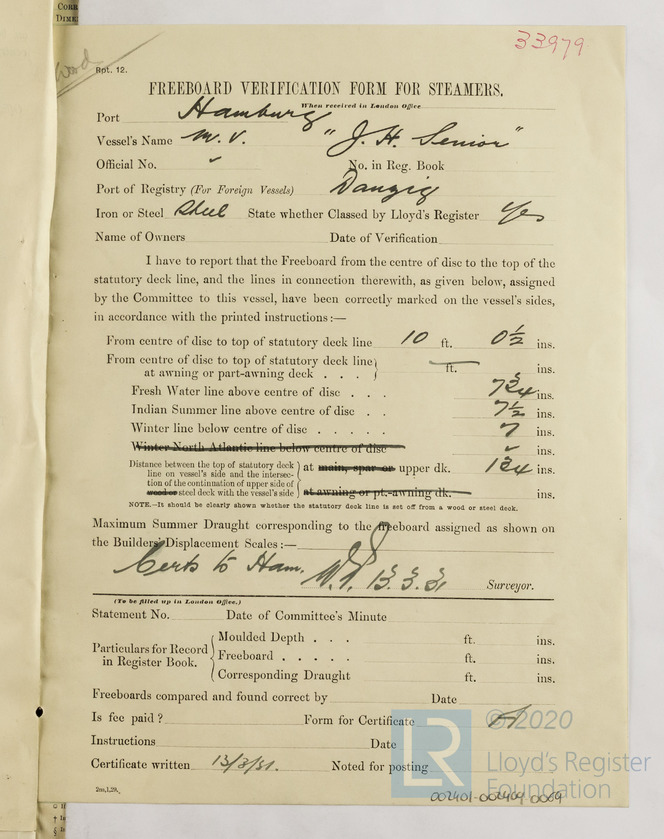 CORR
DIME
33979
Wood
Rpt. 12.
FREEBOARD VERIFICATION FORM FOR STEAMERS.
When received in London Office
Port Hamburg
Vessel's Name M.V. "J. H. Senior"
Official No. No. in Reg. Book
Port of Registry (For Foreign Vessels) Danzig
Iron or Steel Steel State whether Classed by Lloyd's Register Yes
Name of Owners Date of Verification
I have to report that the Freeboard from the centre of disc to the top of the
statutory deck line, and the lines in connection therewith, as given below, assigned
by the Committee to this vessel, have been correctly marked on the vessel's sides,
in accordance with the printed instructions:—
From centre of disc to top of statutory deck line 10 ft. 0½ ins.
From centre of disc to top of statutory deck line
at awning or part-awning deck . . . ft. ins.
Fresh Water line above centre of disc . . . 7¾ ins.
Indian Summer line above centre of disc . . 7½ ins.
Winter line below centre of disc . . . . . 7 ins.
Winter North Atlantic line below centre of disc ins.
Distance between the top of statutory deck
line on vessel's side and the intersec-
tion of the continuation of upper side of
wood or steel deck with the vessel's side
at main, spar or upper dk. 1¾ ins.
at awning or pt.-awning dk. ins.
NOTE.—It should be clearly shown whether the statutory deck line is set off from a wood or steel deck.
Maximum Summer Draught corresponding to the freeboard assigned as shown on
the Builders' Displacement Scales:—
Certs to Ham. 13.3.31 Surveyor.
(To be filled up in London Office.)
Statement No. Date of Committee's Minute
Particulars for Record
in Register Book.
Moulded Depth . . . ft. ins.
Freeboard . . . . . ft. ins.
Corresponding Draught ft. ins.
Freeboards compared and found correct by Date
Is fee paid? Form for Certificate
Instructions Date
Certificate written 13/3/31. Noted for posting
2m,1,28.
LR
© 2020
Lloyd's Register
Foundation
002401-002409-0069